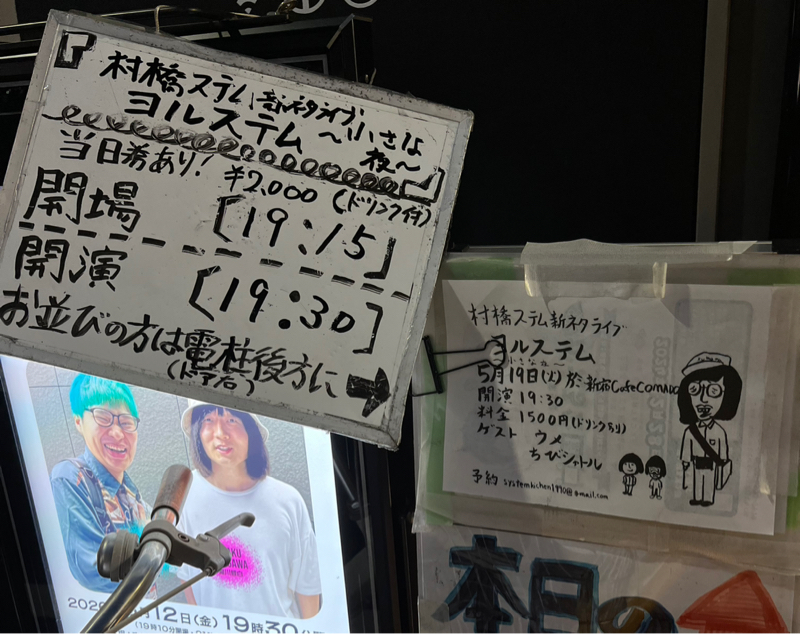 『村橋ステム新ネタライブ
ヨルステム ～小さな
夜～』
当日券あり! ¥2,000 (ドリンク付)
開場 [19:15]
開演 [19:30]
お並びの方は電柱後方に→
(ドア右)
村橋ステム新ネタライブ
ヨルステム
～小さな夜～
5月19日(火) 於 新宿
開演 19:30
料金 1500円(ドリンク別)
ゲスト ウメ
ちびシャトル
予約
12日(金) 19時30
(19時10分開場
本日の